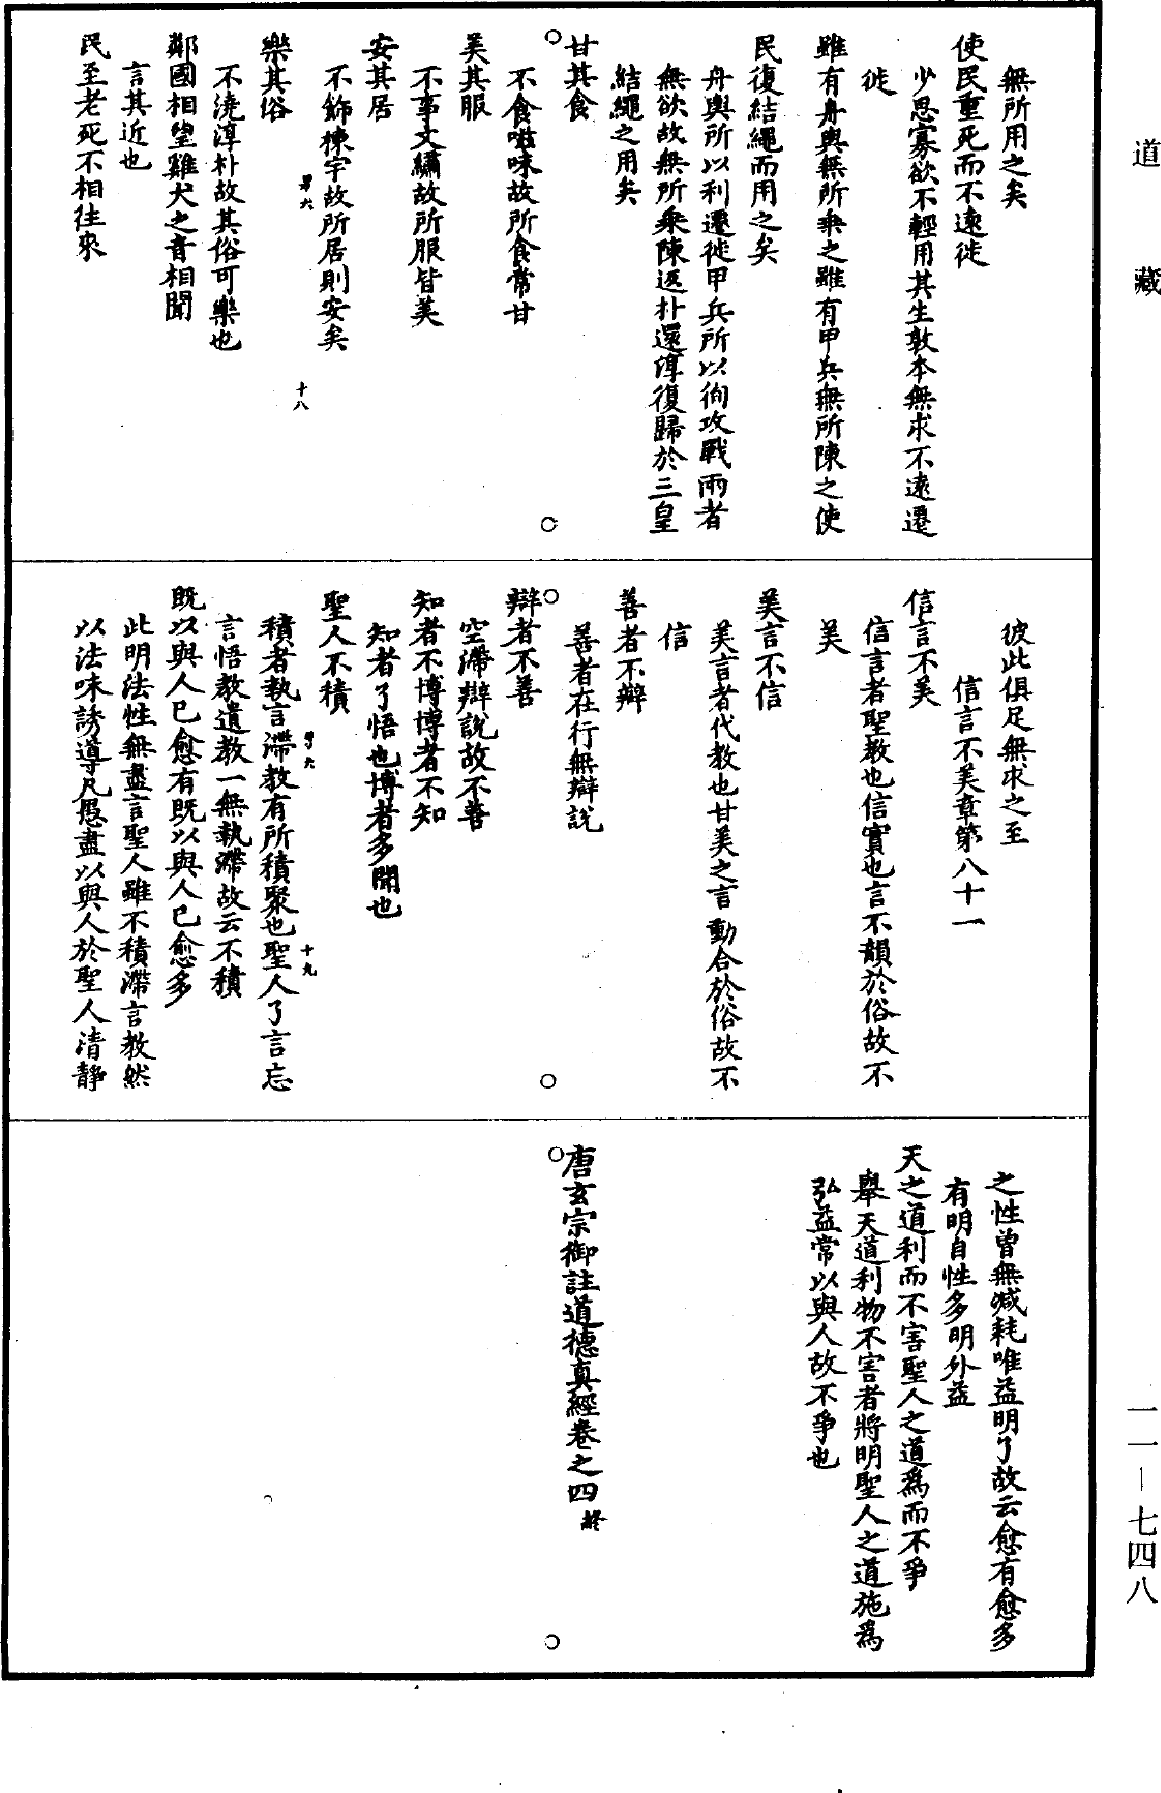 道藏
無所用之矣
使民重死而不遠徙
少思寡欲不輕用其生敦本無求不遠遷
徙
雖有舟輿無所乗之雖有甲兵無所陳之使
民復結繩而用之矣
舟輿所以利遷徙甲兵所以徇攻戰兩者
無欲故無所乗陳返朴還淳復歸於三皇
結繩之用矣
甘其食
不食滋味故所食常甘
美其服
不事文繡故所服皆美
安其居
不飾棟宇故所居則安矣
十八
樂其俗
不澆淳朴故其俗可樂也
鄰國相望雞犬之音相聞
言其近也
民至老死不相往來
彼此俱足無求之至
信言不美章第八十一
信言不美
信言者聖教也信實也言不韻於俗故不
美
美言不信
美言者代教也甘美之言動合於俗故不
信
善者不辯
善者在行無辯說
辯者不善
空滯辯說故不善
知者不博博者不知
知者了悟也博者多聞也
聖人不積
十九
積者執言滯教有所積聚也聖人了言忘
言悟教遺教一無執滯故云不積
既以與人已愈有既以與人已愈多
此明法性無盡言聖人雖不積滯言教然
以法味誘導凡愚盡以與人於聖人清靜
之性曾無減耗唯益明了故云愈有愈多
有明自性多明外益
天之道利而不害聖人之道爲而不爭
舉天道利物不害者將明聖人之道施爲
弘益常以與人故不爭也
唐玄宗御註道德真經卷之四終
一一—七四八